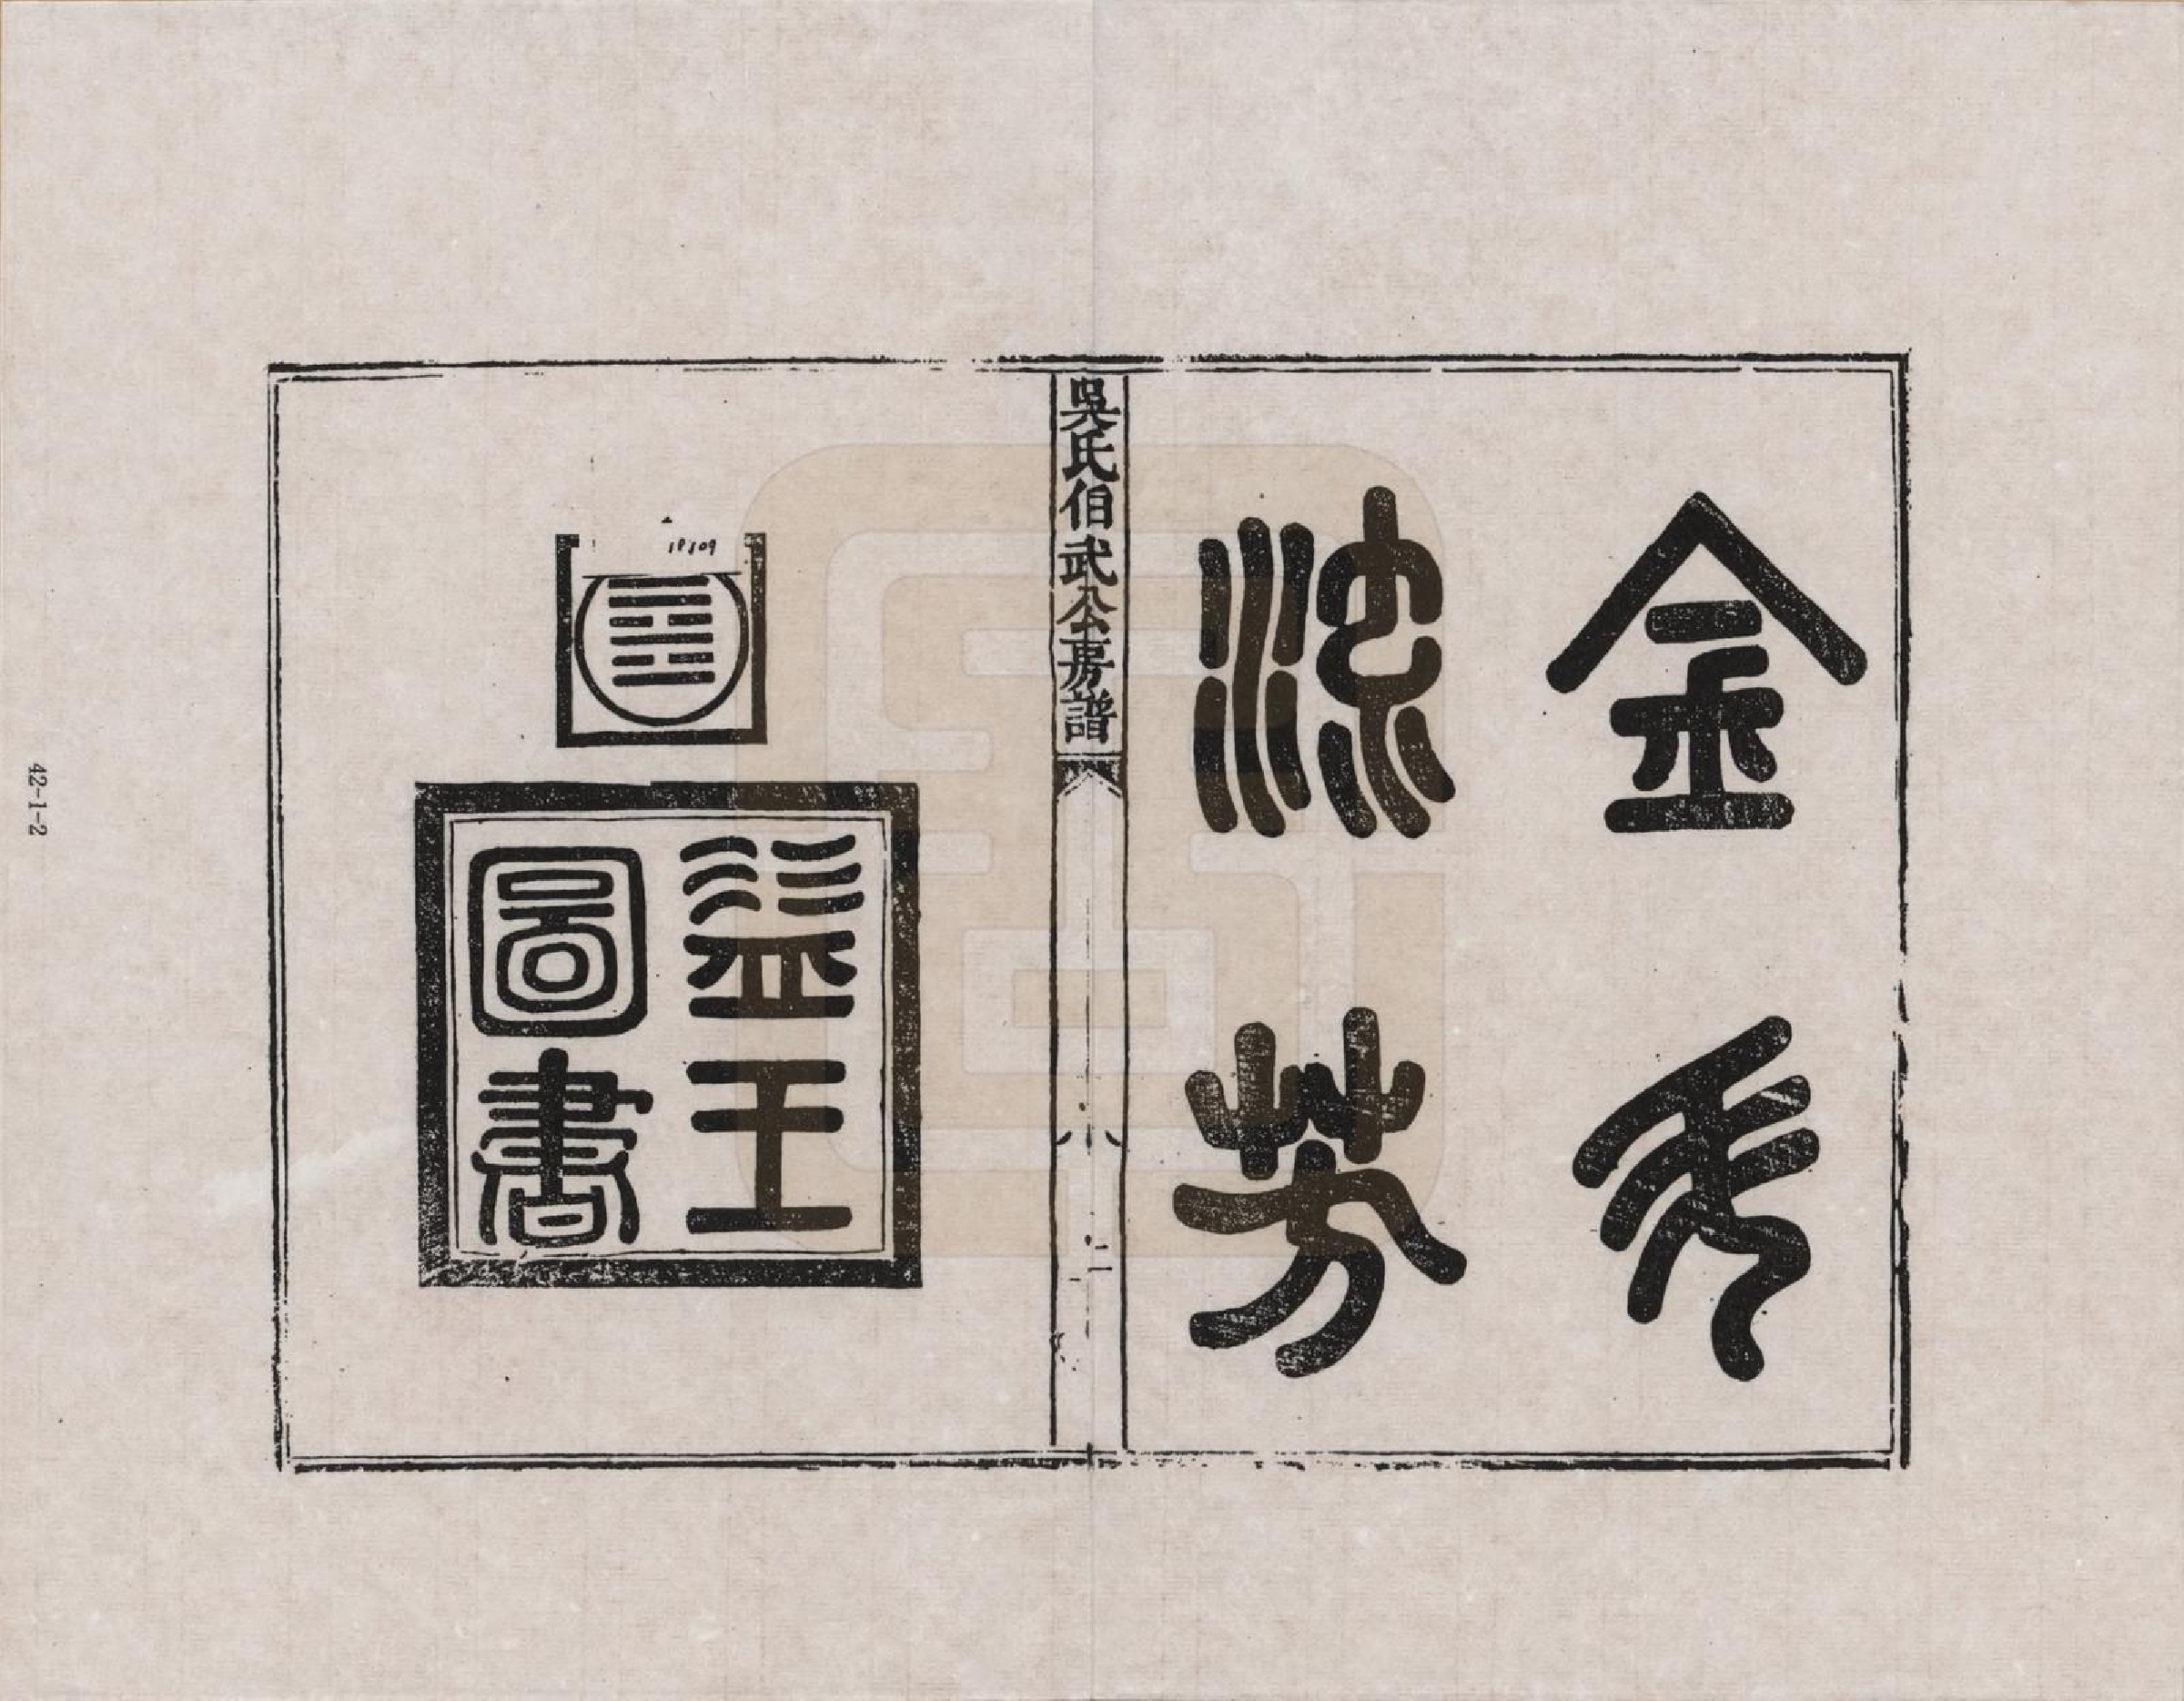 金秀
流芳
吳氏伯武公房譜
二
益王
圖書
42-1-2